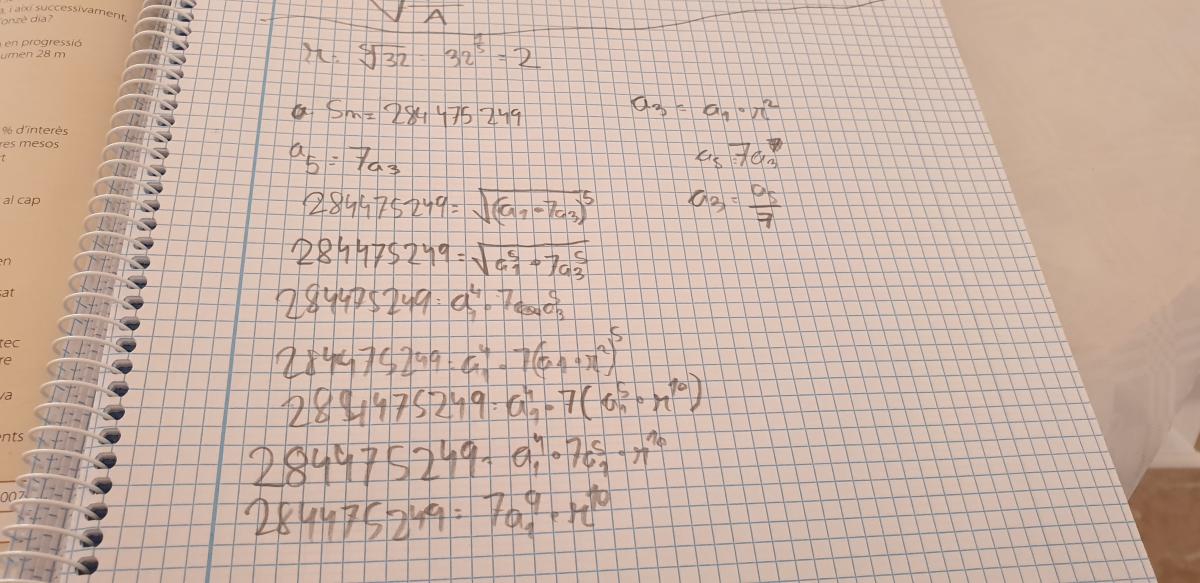 , i així successivament,
onzè dia?
en progressió
umen 28 m
% d'interès
res mesos
t
al cap
en
sat
tec
re
va
ents
007
√ A
r = ⁵√32 = 32^(1/5) = 2
a. Sn = 284 475 249
a₅ = 7a₃
284475249 = √(a₁ · 7a₃)⁵
284475249 = √a₁⁵ · 7a₃⁵
284475249 = a₁⁴ · 7a₃⁵
284475249 = a₁⁴ · 7(a₁ · r²)⁵
284475249 = a₁⁴ · 7(a₁⁵ · r¹⁰)
284475249 = a₁⁴ · 7a₁⁵ · r¹⁰
284475249 = 7a₁⁹ · r¹⁰
a₃ = a₁ · r²
a₅ = 7a₃
a₃ = a₅/7